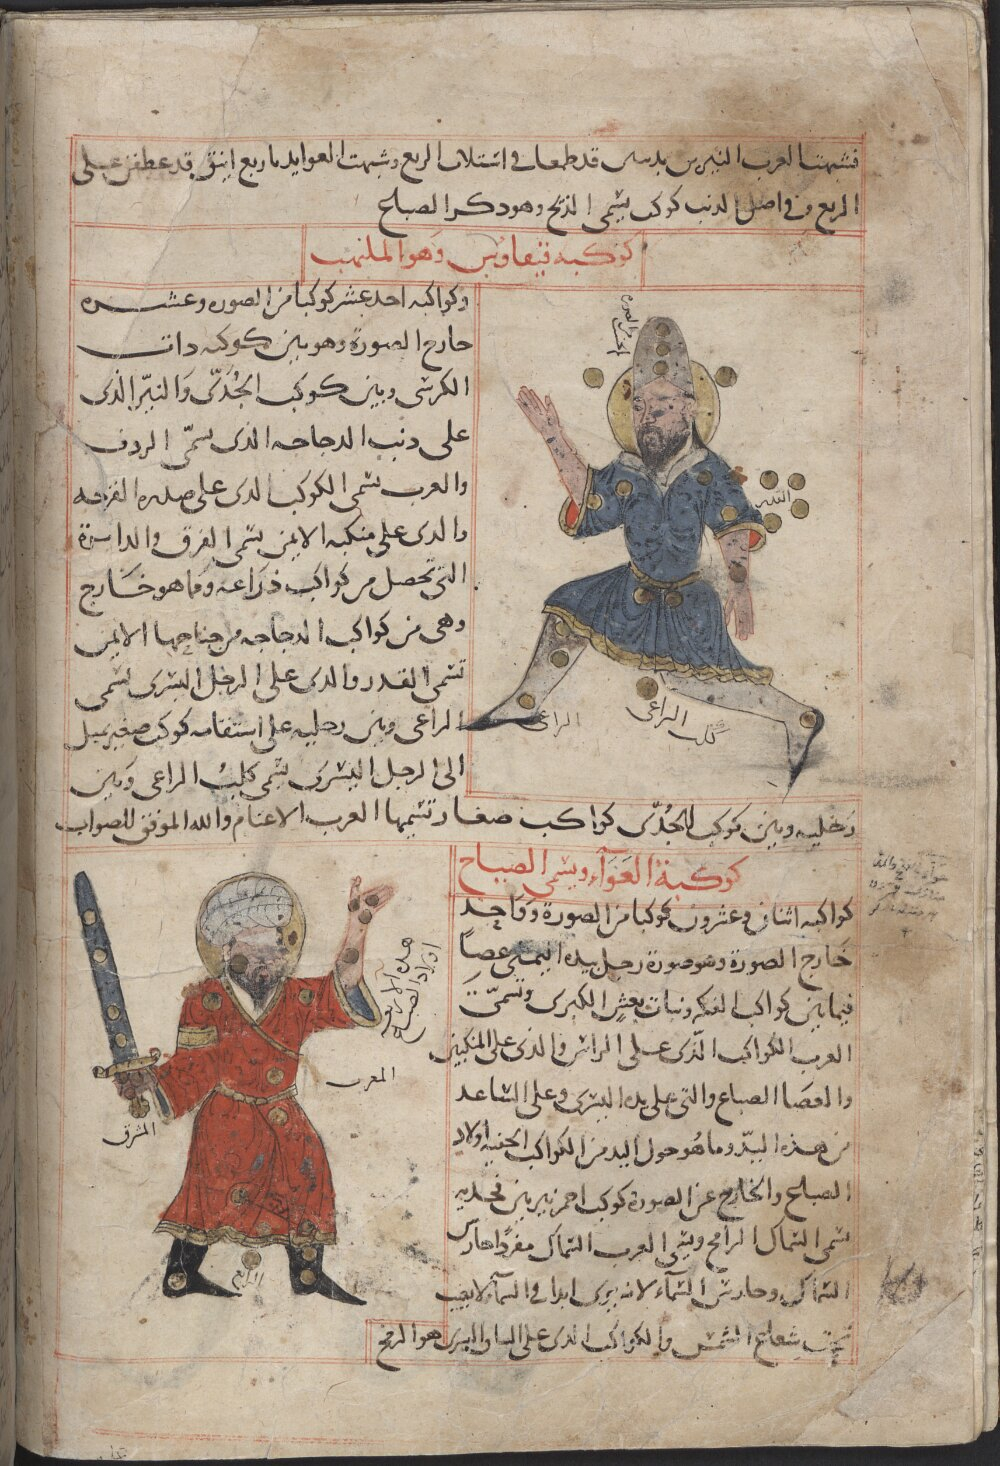 فشبهت العرب النيرين بذيبين قد طمعا في استلاب الربع وشبهت العوايد باربع اينق قد عطفن على
الربع وفي اصل الذنب كوكب يسمى الذيخ وهو ذكر الضباع
كوكبة قيقاوس وهو الملتهب
وكواكبه احد عشر كوكبا من الصوره وعشره
خارج الصورة وهو بين كوكبه ذات
الكرسي وبين كوكب الجُدَيّ والنيّر الذى
على ذنب الدجاجه الذى يسمّى الردف
والعرب تسمى الكوكب الذى على صدره القرحه
والذى على منكبه الايمن يسمى الفرق والدائرة
التى تحصل من كواكب ذراعه وما هو خارج
وهى من كواكب الدجاجه من جناحها الايمن
تسمى القدر والذى على الرجل اليسرى تسمى
الراعى وبين رجليه على استقامه كوكب صغير يميل
الى الرجل اليسرى يسمى كلبُ الراعى وبين
رجليه وبين كوكب الجُدَيّ كواكب صغار تسميها العرب الاغنام والله الموفق للصواب
القدر
الراعى
كلب الراعى
كوكبة العَوّآء ويسمى الصياح
كواكبه اثنان وعشرون كوكبا من الصورة وواحد
خارج الصورة وهو صورة رجل بيده اليمنى عصا
فيما بين كواكب الفكه وبنات نعش الكبرى وتسمّى
العرب الكواكب الذى على الراس والذى على المنكبين
والعصا الضباع والتى على يده اليسرى وعلى الساعد
من هذه اليدّ وما هُو حول اليد من الكواكب الخفيه اولاد
الضباع والخارج عن الصورة كوكب احمر نير بين فخذيه
يسمى السماك الرامح ويسمى العرب السماك مفردًا حارس
السماك وحارس السماء لانه يرى ابدا فى السمآء لا يغيب
تحت شعاع الشمس والكواكب الذى على الساق اليسرى هو الرمح
هذه الاربعه
اولاد الضباع
المغرب
المشرق
الرامح